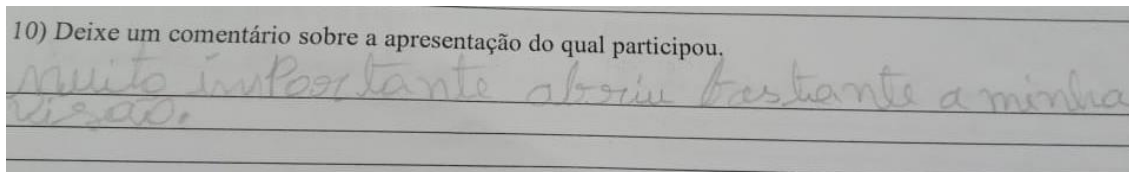 10) Deixe um comentário sobre a apresentação do qual participou.
muito importante abriu bastante a minha
visão.